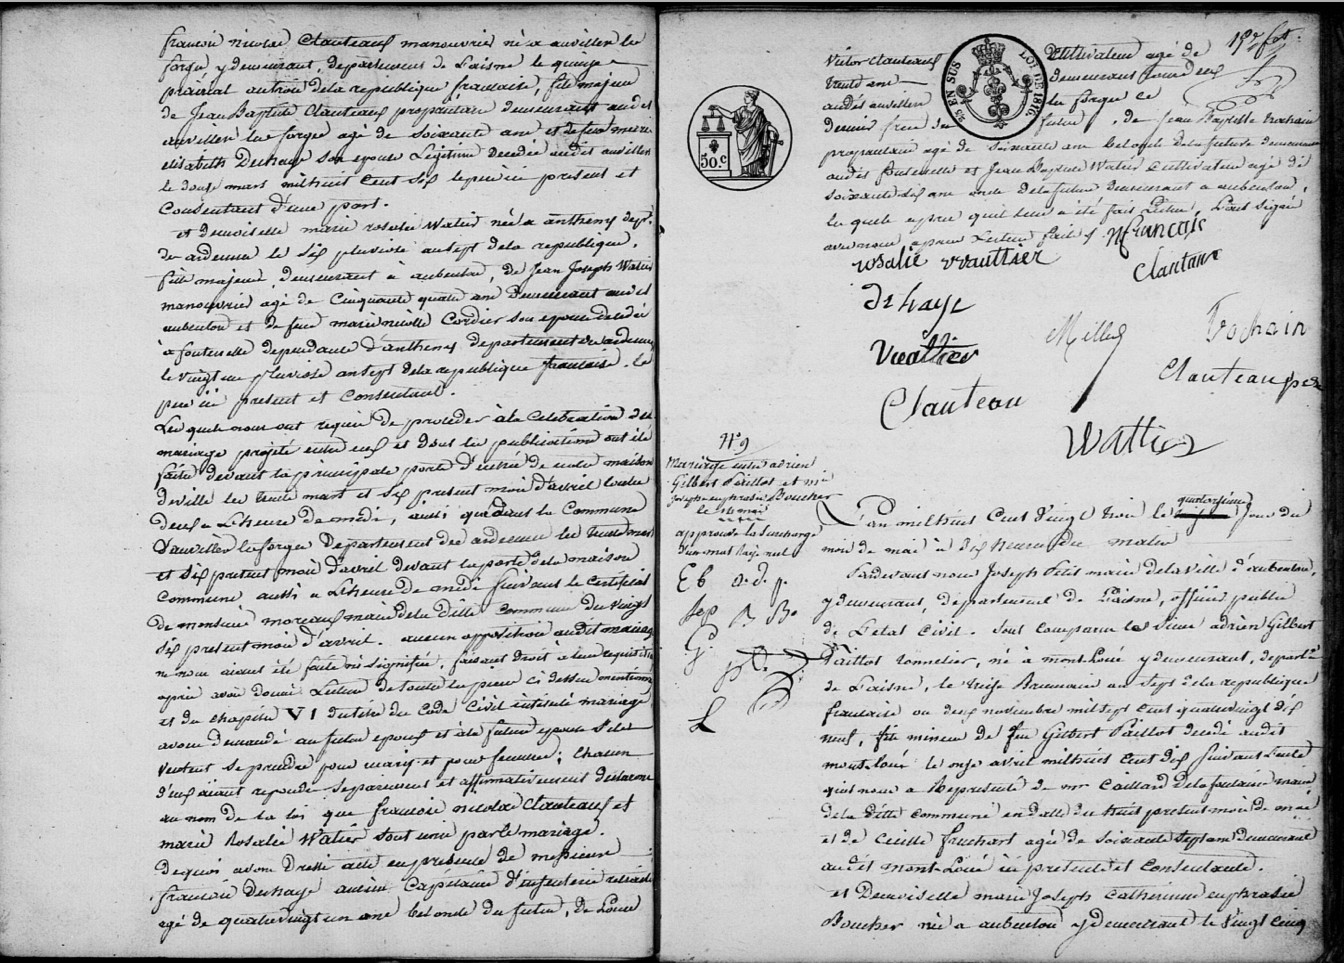 françois nicolas Clauteaux manouvrier né à auviller les
forges y demeurant, departement de L'aisne le quinze
prairial an trois de la republique francaise, fils majeur
de Jean Baptiste Clauteaux proprietaire demeurant audit
auviller les forges agé de soixante ans et de feu marie
elisabeth Dehaye son epouse Legitime decedée audit auviller
le douze mars mil huit Cent six le père ici present et
Consentant d'une part.
et demoiselle marie rosalie Watier née a antheny depᵗ.
des ardennes le six pluviose an sept de la republique,
fille majeure, demeurant à aubenton, de Jean Joseph Watier
manouvrier agé de Cinquante quatre ans demeurant audit
aubenton et de feue marie nicolle Cordier son epouse decedée
à fontenelle dependance d'antheny departement des ardennes
le vingt un pluviose an sept de la republique francaise, le
père ici present et Consentant.
Lesquels nous ont requis de proceder à la Celebration du
mariage projeté entre eux et dont les publications ont été
faites devant la principale porte d'entrée de notre maison
de ville les trente mars et six present mois d'avril toutes
deux a L'heure de midi, aussi que dans la Commune
d'auviller les forges Departement des ardennes les trente mars
et six present mois d'avril devant la porte de la maison
Commune aussi a L'heure de midi suivant le Certificat
de monsieur moreau maire de la dite Commune du vingt
six present mois d'avril. aucune opposition audit mariage
ne nous aiant été faite ni signifiée, faisant droit a leur requisition
après avoir donné Lecture de toutes les pieces ci dessus mentionnées
et du chapitre VI du titre du Code Civil intitulé mariage
avons demandé au futur epoux et à la future epouse s'ils
veulent se prendre pour mari et pour femme; chacun
d'eux aiant repondu separement et affirmativement declarons
au nom de la loi que françois nicolas Clauteaux et
marie Rosalie Watier sont unis par le mariage.
De quoi avons Dressé acte en presence de messieurs
françois Dehaye ancien Capitaine d'infanterie retraité
agé de quatre vingt un ans bel oncle du futur, de Louis
19ᵉ fᵒᵗ.
Victor Clauteaux Cultivateur agé de
trente ans demeurans tous deux
audit auviller les forges ce
dernier frere du futur, de Jean Baptiste trochain
proprietaire agé de soixante ans bel oncle de la future demeurant
audit fontenelle et Jean Baptiste Watier Cultivateur agé de
soixante dix ans oncle de la future demeurant a aubenton,
lesquels après qu'il leur a été fait Lecture, L'ont signé
avec nous après Lecture faite
25 EN SUS LOI DE 1816.
50.c
françois
rosalie vvautier
Clauteaux
Dehaye
Milles
trochain
Vvattier
Clauteau père
Clauteau
Wattier
Nº 9
Mariage entre adrien
Gilbert Paillot et mᵉ
Joseph euphrasie Boucher
le 14 mai
approuvé la surcharge
d'un mot rayé nul
E b a. d. p.
B Bo
G.
L'an mil huit Cent vingt trois le quatorzieme Jour du
mois de mai à dix heures du matin
Pardevant nous Joseph Petit maire de la Ville d'aubenton,
y demeurant, departement de L'aisne, officier public
de L'etat Civil. Sont Comparus le Sieur adrien Gilbert
Paillot tonnelier, né à mont Loué y demeurant, departᵗ
de L'aisne, le treize Brumaire an sept de la republique
francaise ou deux novembre mil sept cent quatre vingt dix
neuf, fils mineur de feu Gilbert Paillot decedé audit
mont loué le onze avril mil huit Cent dix suivant l'acte
qui nous a Representé de mʳ Caillard delafontaine maire
de la dite Commune en datte du huit present mois de mai
et de Cecille fruchart agée de soixante sept ans demeurant
audit mont-Loué ici presente et Consentante.
et Demoiselle marie Joseph Catherine euphrasie
Boucher née a aubenton y demeurant le vingt cinq